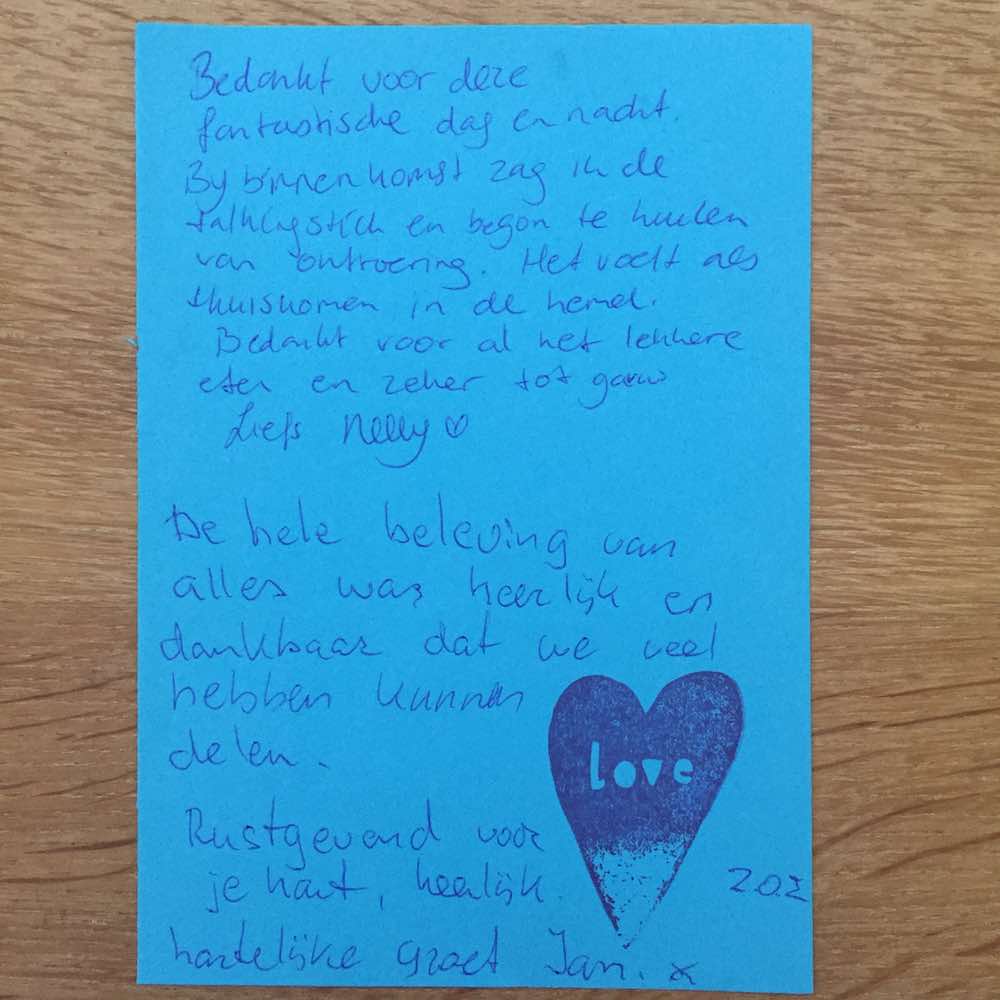 Bedankt voor deze
fantastische dag en nacht.
By binnenkomst zag ik de
talkingstick en begon te huilen
van ontroering. Het voelt als
thuiskomen in de hemel.
Bedankt voor al het lekkere
eten en zeker tot gauw
Liefs Nelly ♡
De hele beleving van
alles was heerlijk en
dankbaar dat we veel
hebben kunnen
delen.
love
Rustgevend voor
je hart, heerlijk.
Z.O.Z
hartelijke groet Jan. x